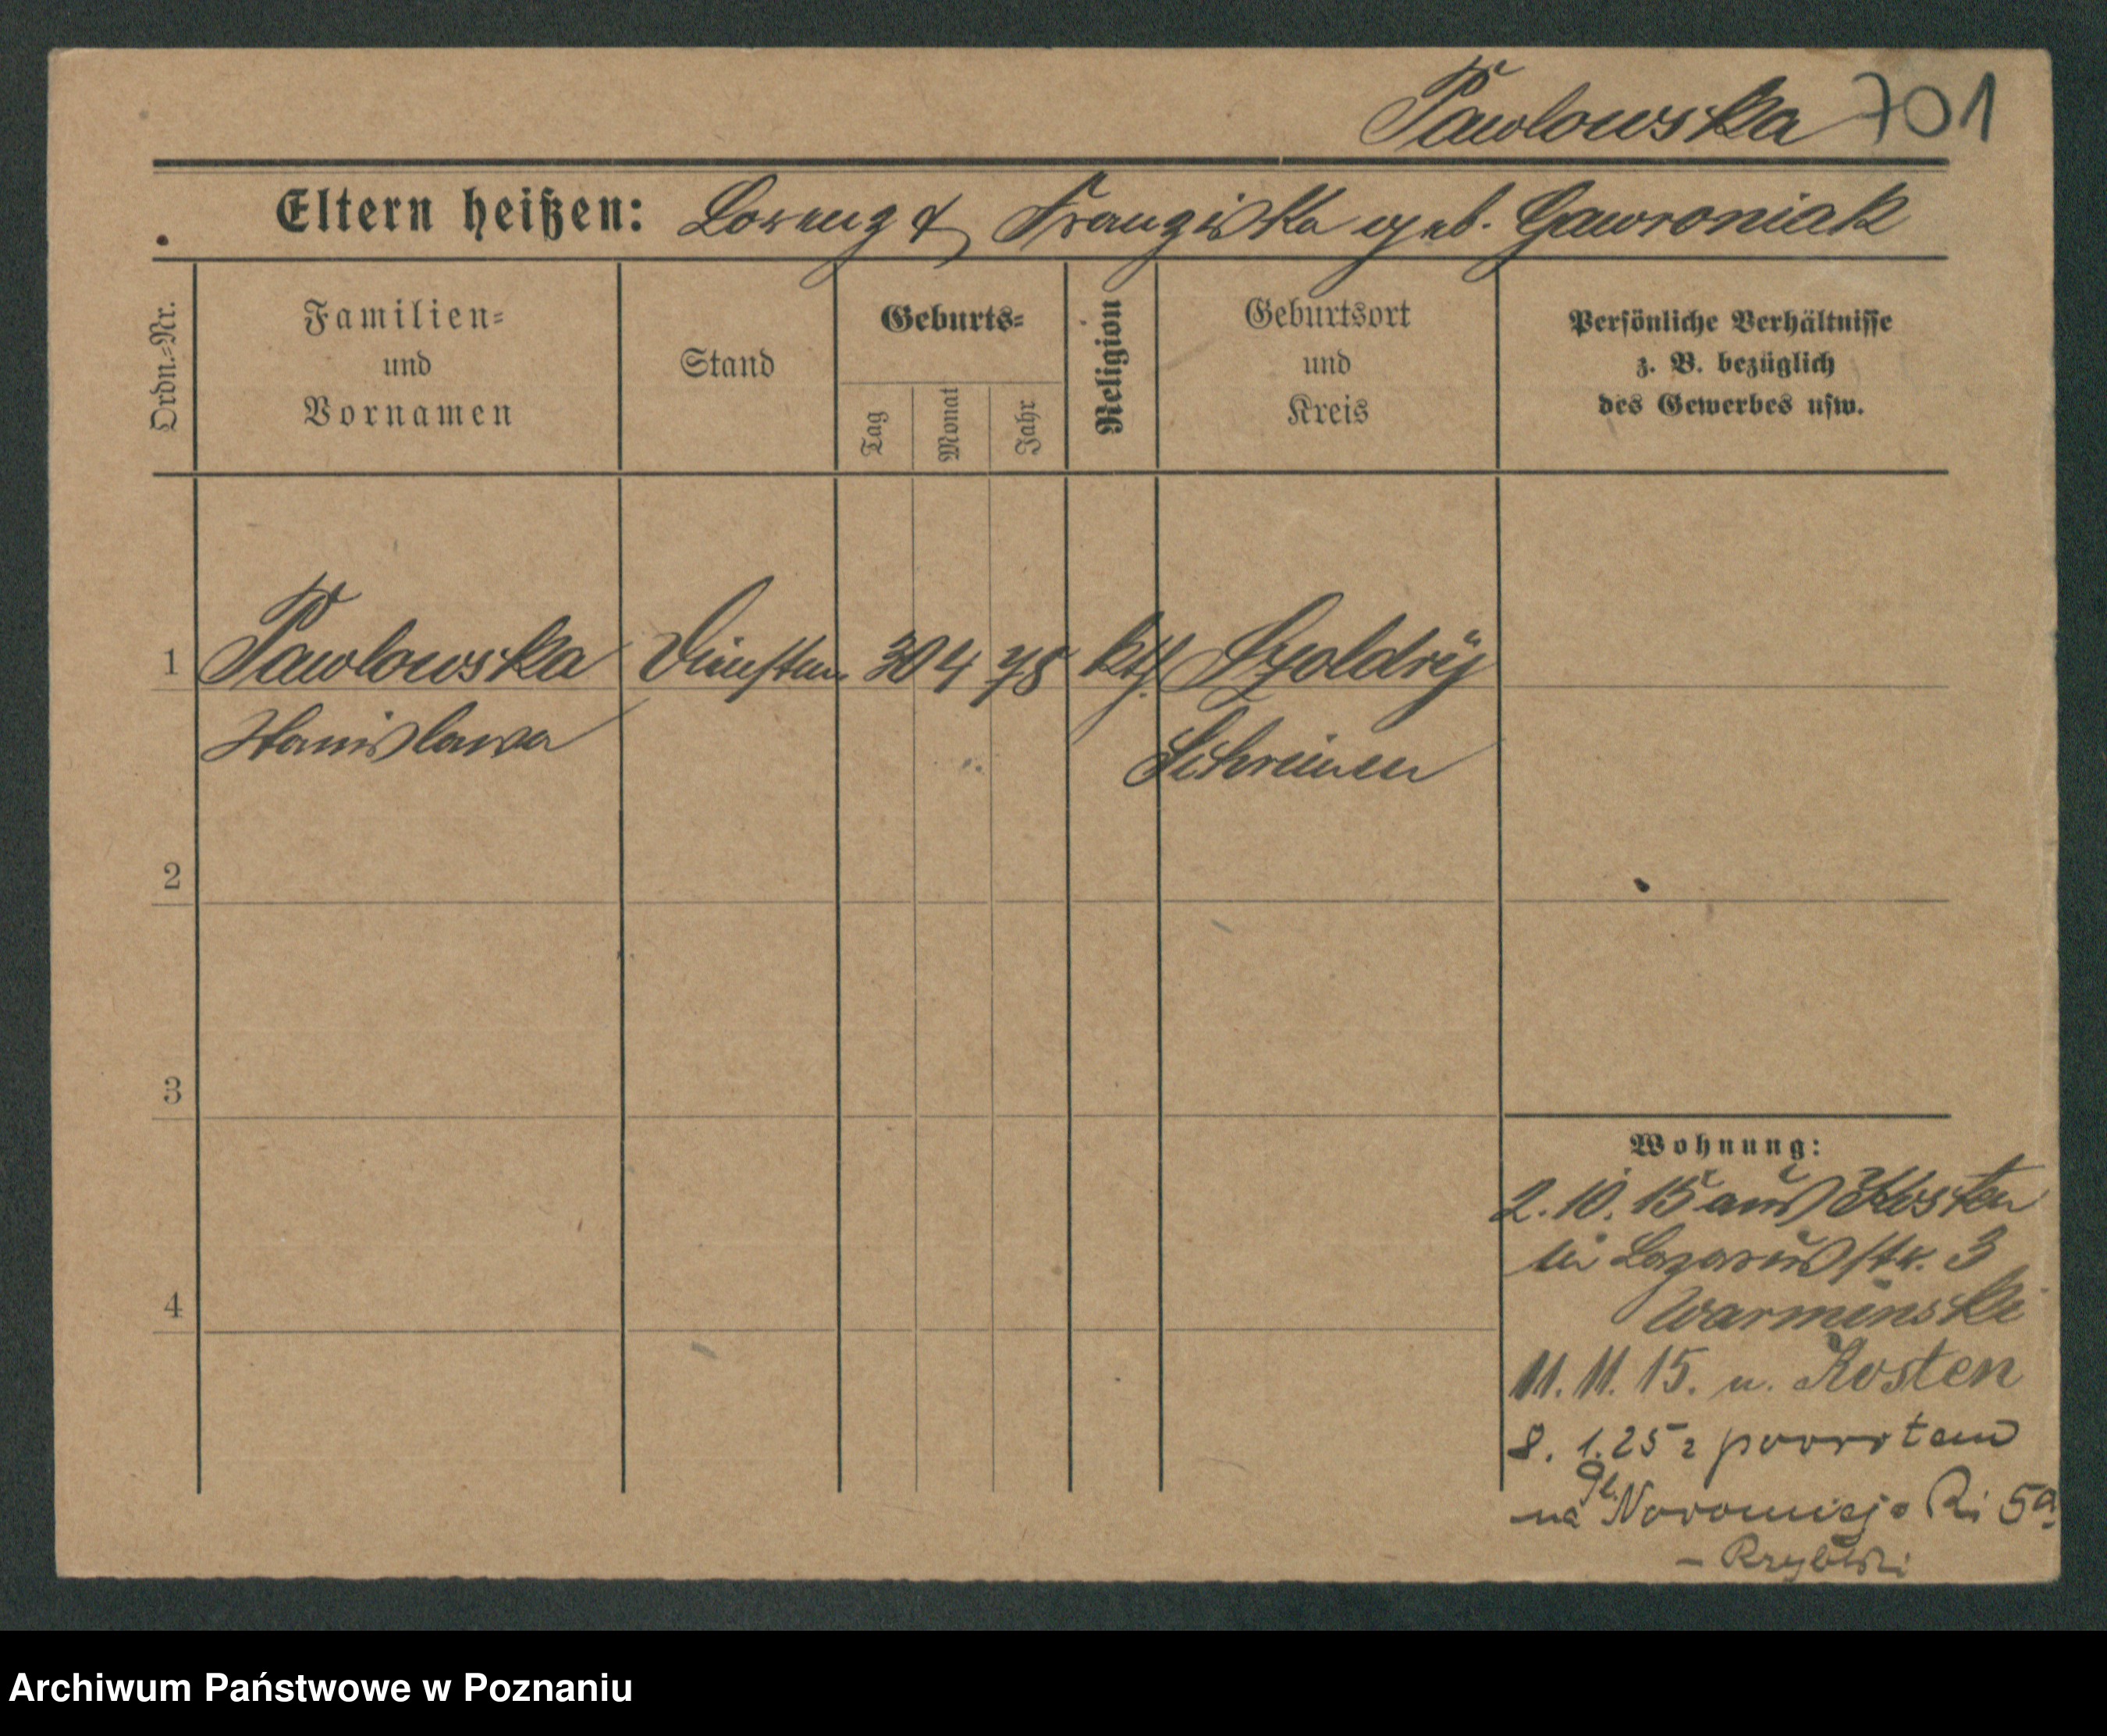 Pawlowska 701
Eltern heißen: Lorenz & Franziska geb. Gawroniak
Ordn.-Nr.
Familien-
und
Vornamen
Stand
Geburts-
Tag
Monat
Jahr
Religion
Geburtsort
und
Kreis
Persönliche Verhältnisse
z. B. bezüglich
des Gewerbes usw.
1 Pawlowska Dienstm. 30 4 98 kth. Szoldry
Stanislawa Schrimm
2
3
Wohnung:
2. 10. 15 aus Kosten
in Lazarusstr. 3
Warminski
4
11. 11. 15. n. Kosten
8. 1. 25 z powrotem
na Pl. Nowomiejski 5a
Archiwum Państwowe w Poznaniu